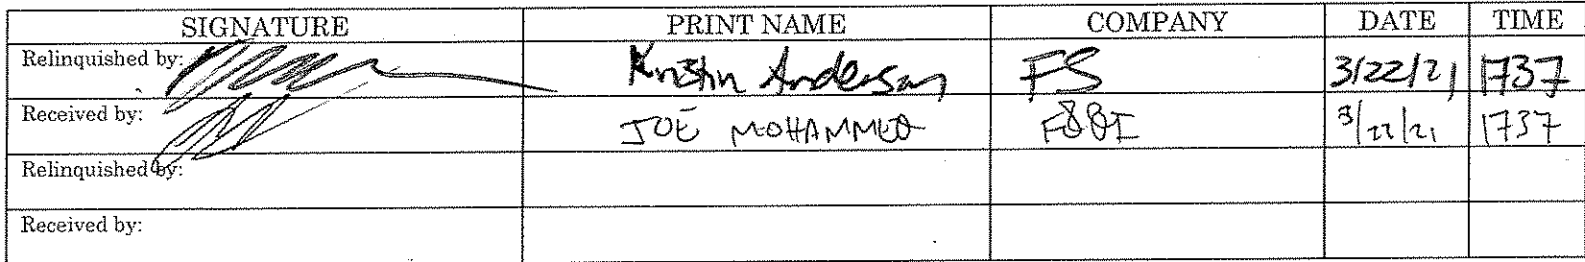 SIGNATURE PRINT NAME COMPANY DATE TIME
Relinquished by: Kristin Anderson FS 3/22/21 1737
Received by: JOE MOHAMMED F&BI 3/22/21 1737
Relinquished by:
Received by: